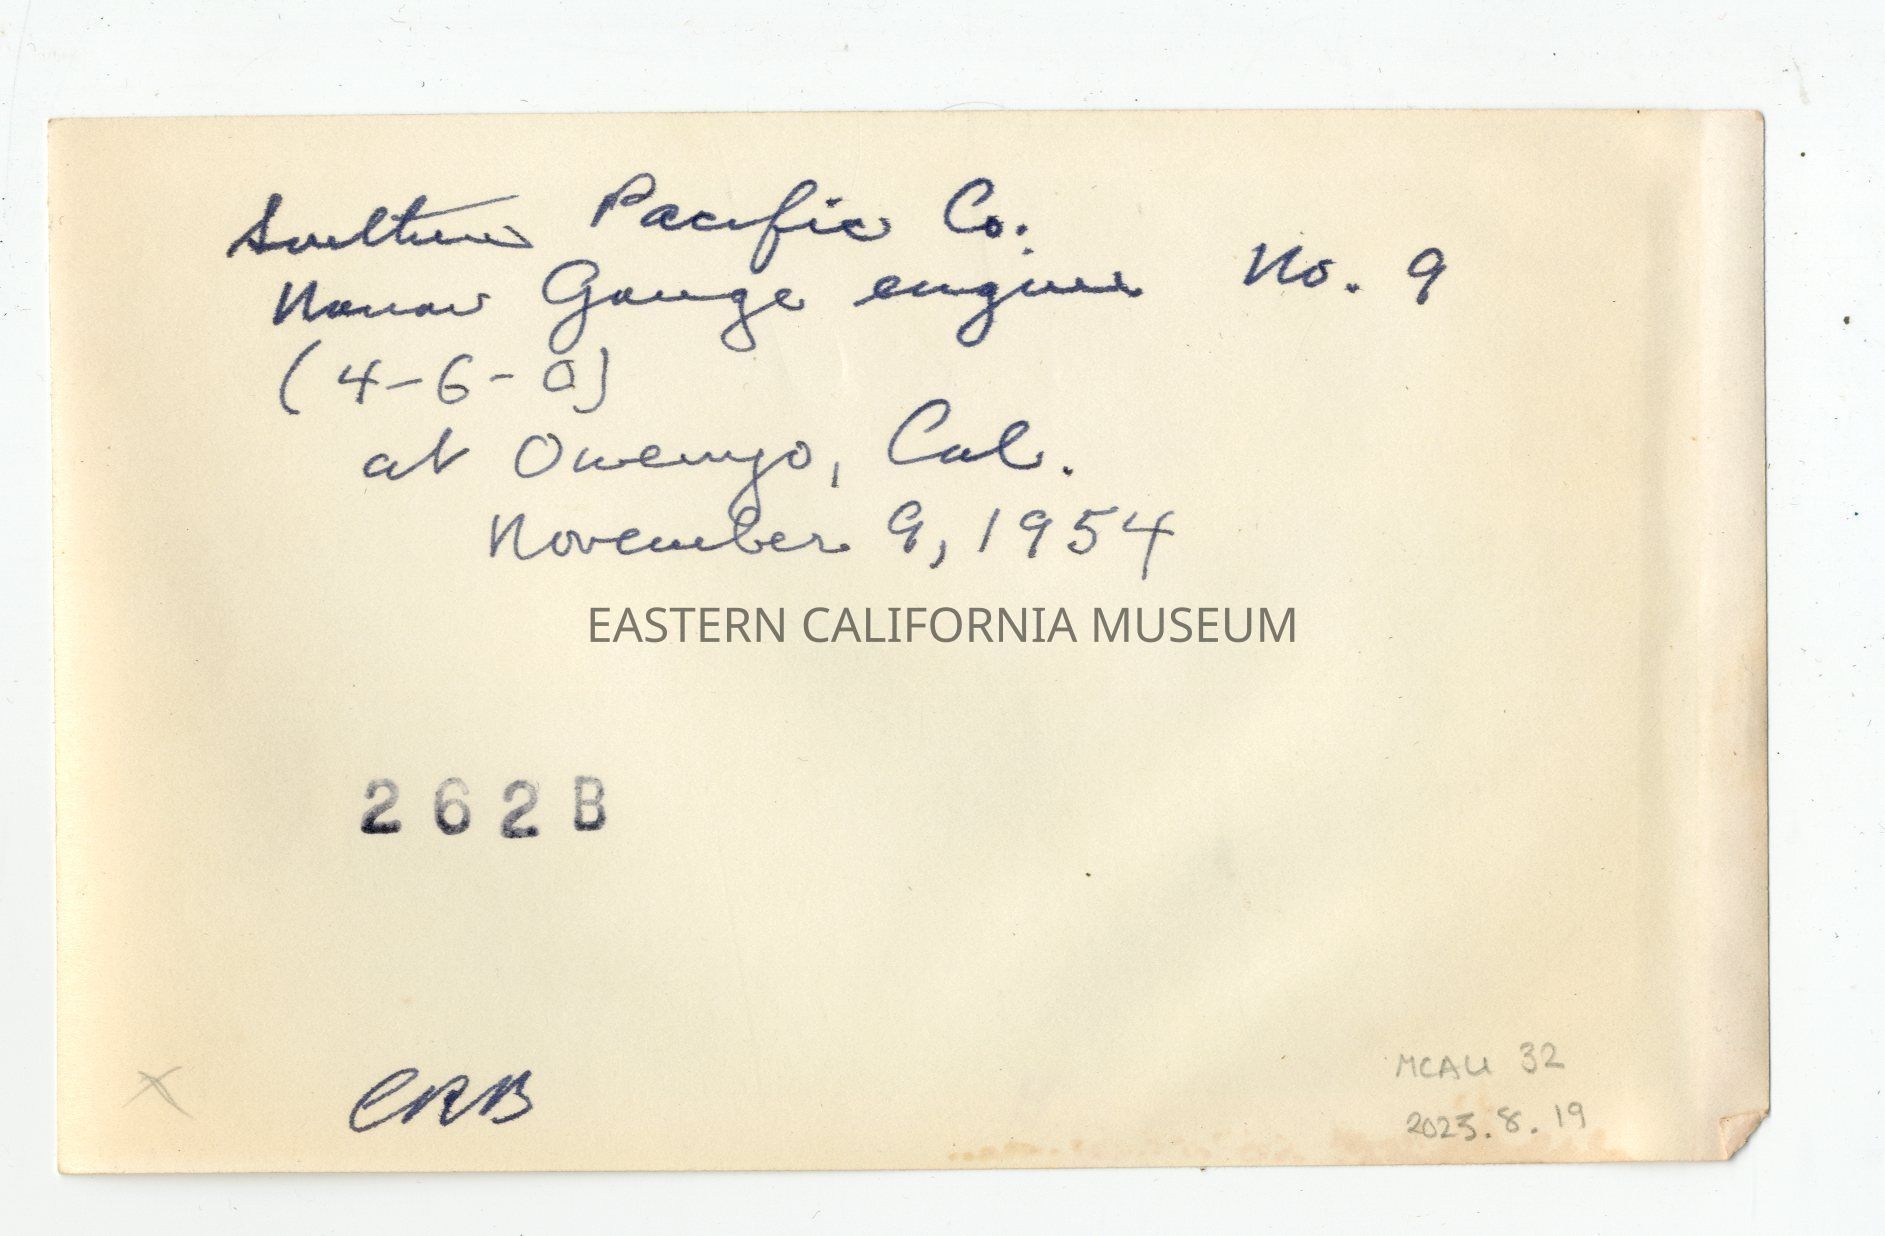 Southern Pacific Co.
Narrow Gauge engine No. 9
(4-6-0)
at Owenyo, Cal.
November 9, 1954
EASTERN CALIFORNIA MUSEUM
262B
X
CRB
MCAU 32
2023.8.19